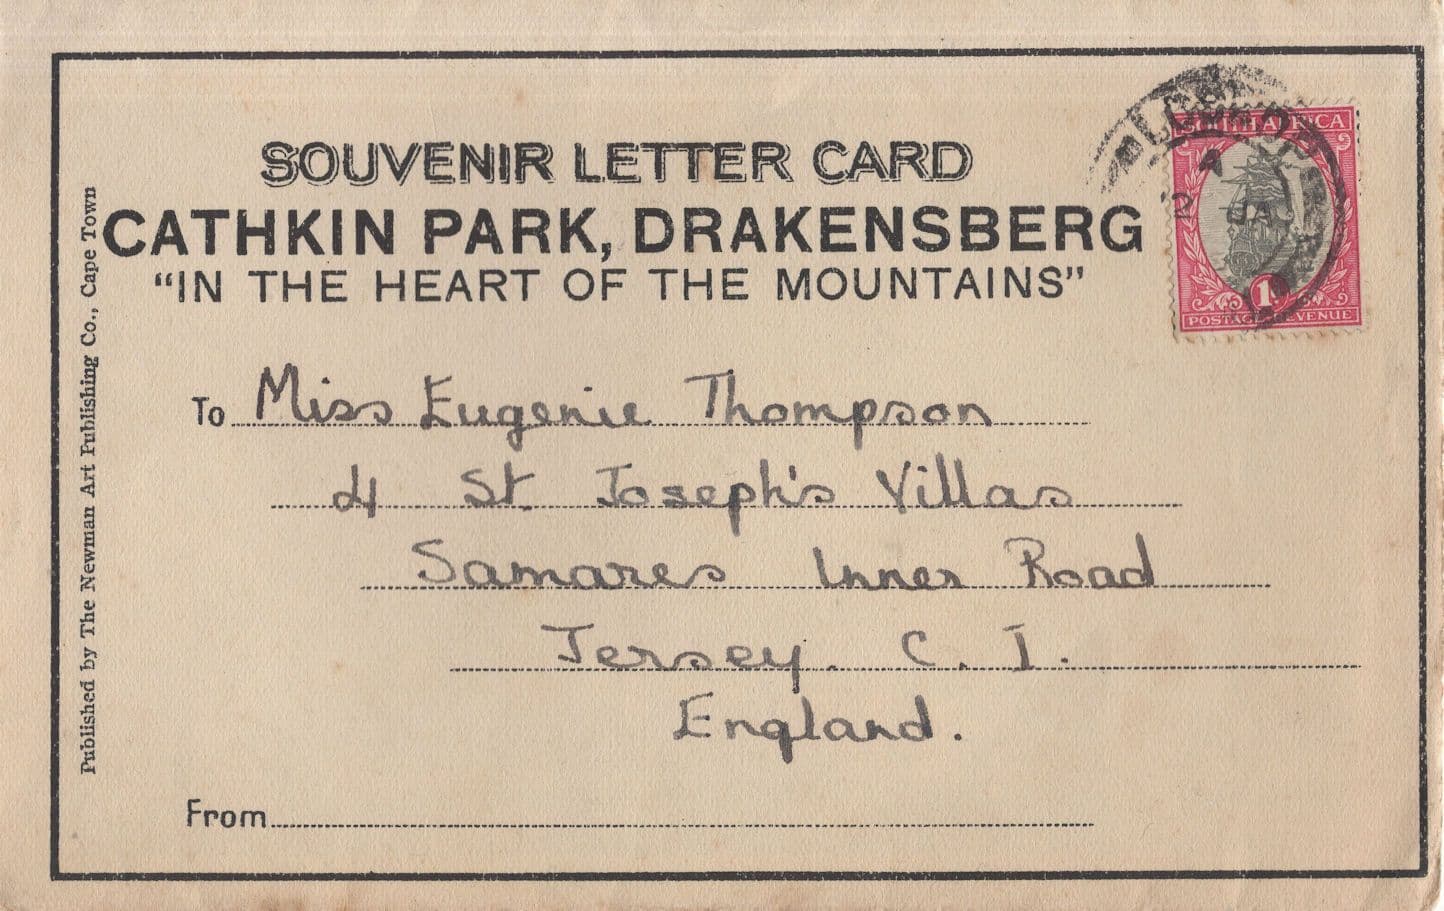 SOUVENIR LETTER CARD
CATHKIN PARK, DRAKENSBERG
"IN THE HEART OF THE MOUNTAINS"
Published by The Newman Art Publishing Co., Cape Town
SOUTH AFRICA
1D
POSTAGE REVENUE
To Miss Eugenie Thompson
4 St. Joseph's Villas
Samares Inner Road
Jersey. C. I.
England.
From